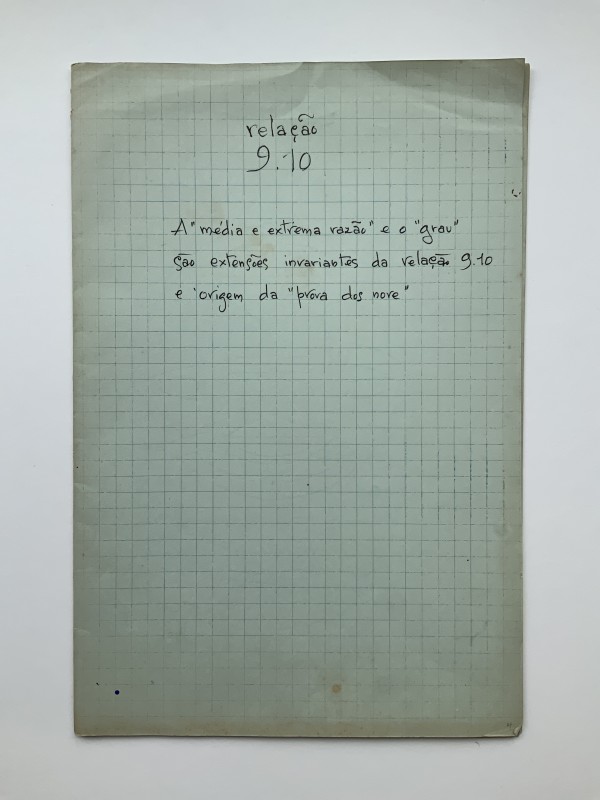 relação
9.10
A "média e extrema razão" e o "grau"
são extensões invariantes da relação 9.10
e origem da "prova dos nove"